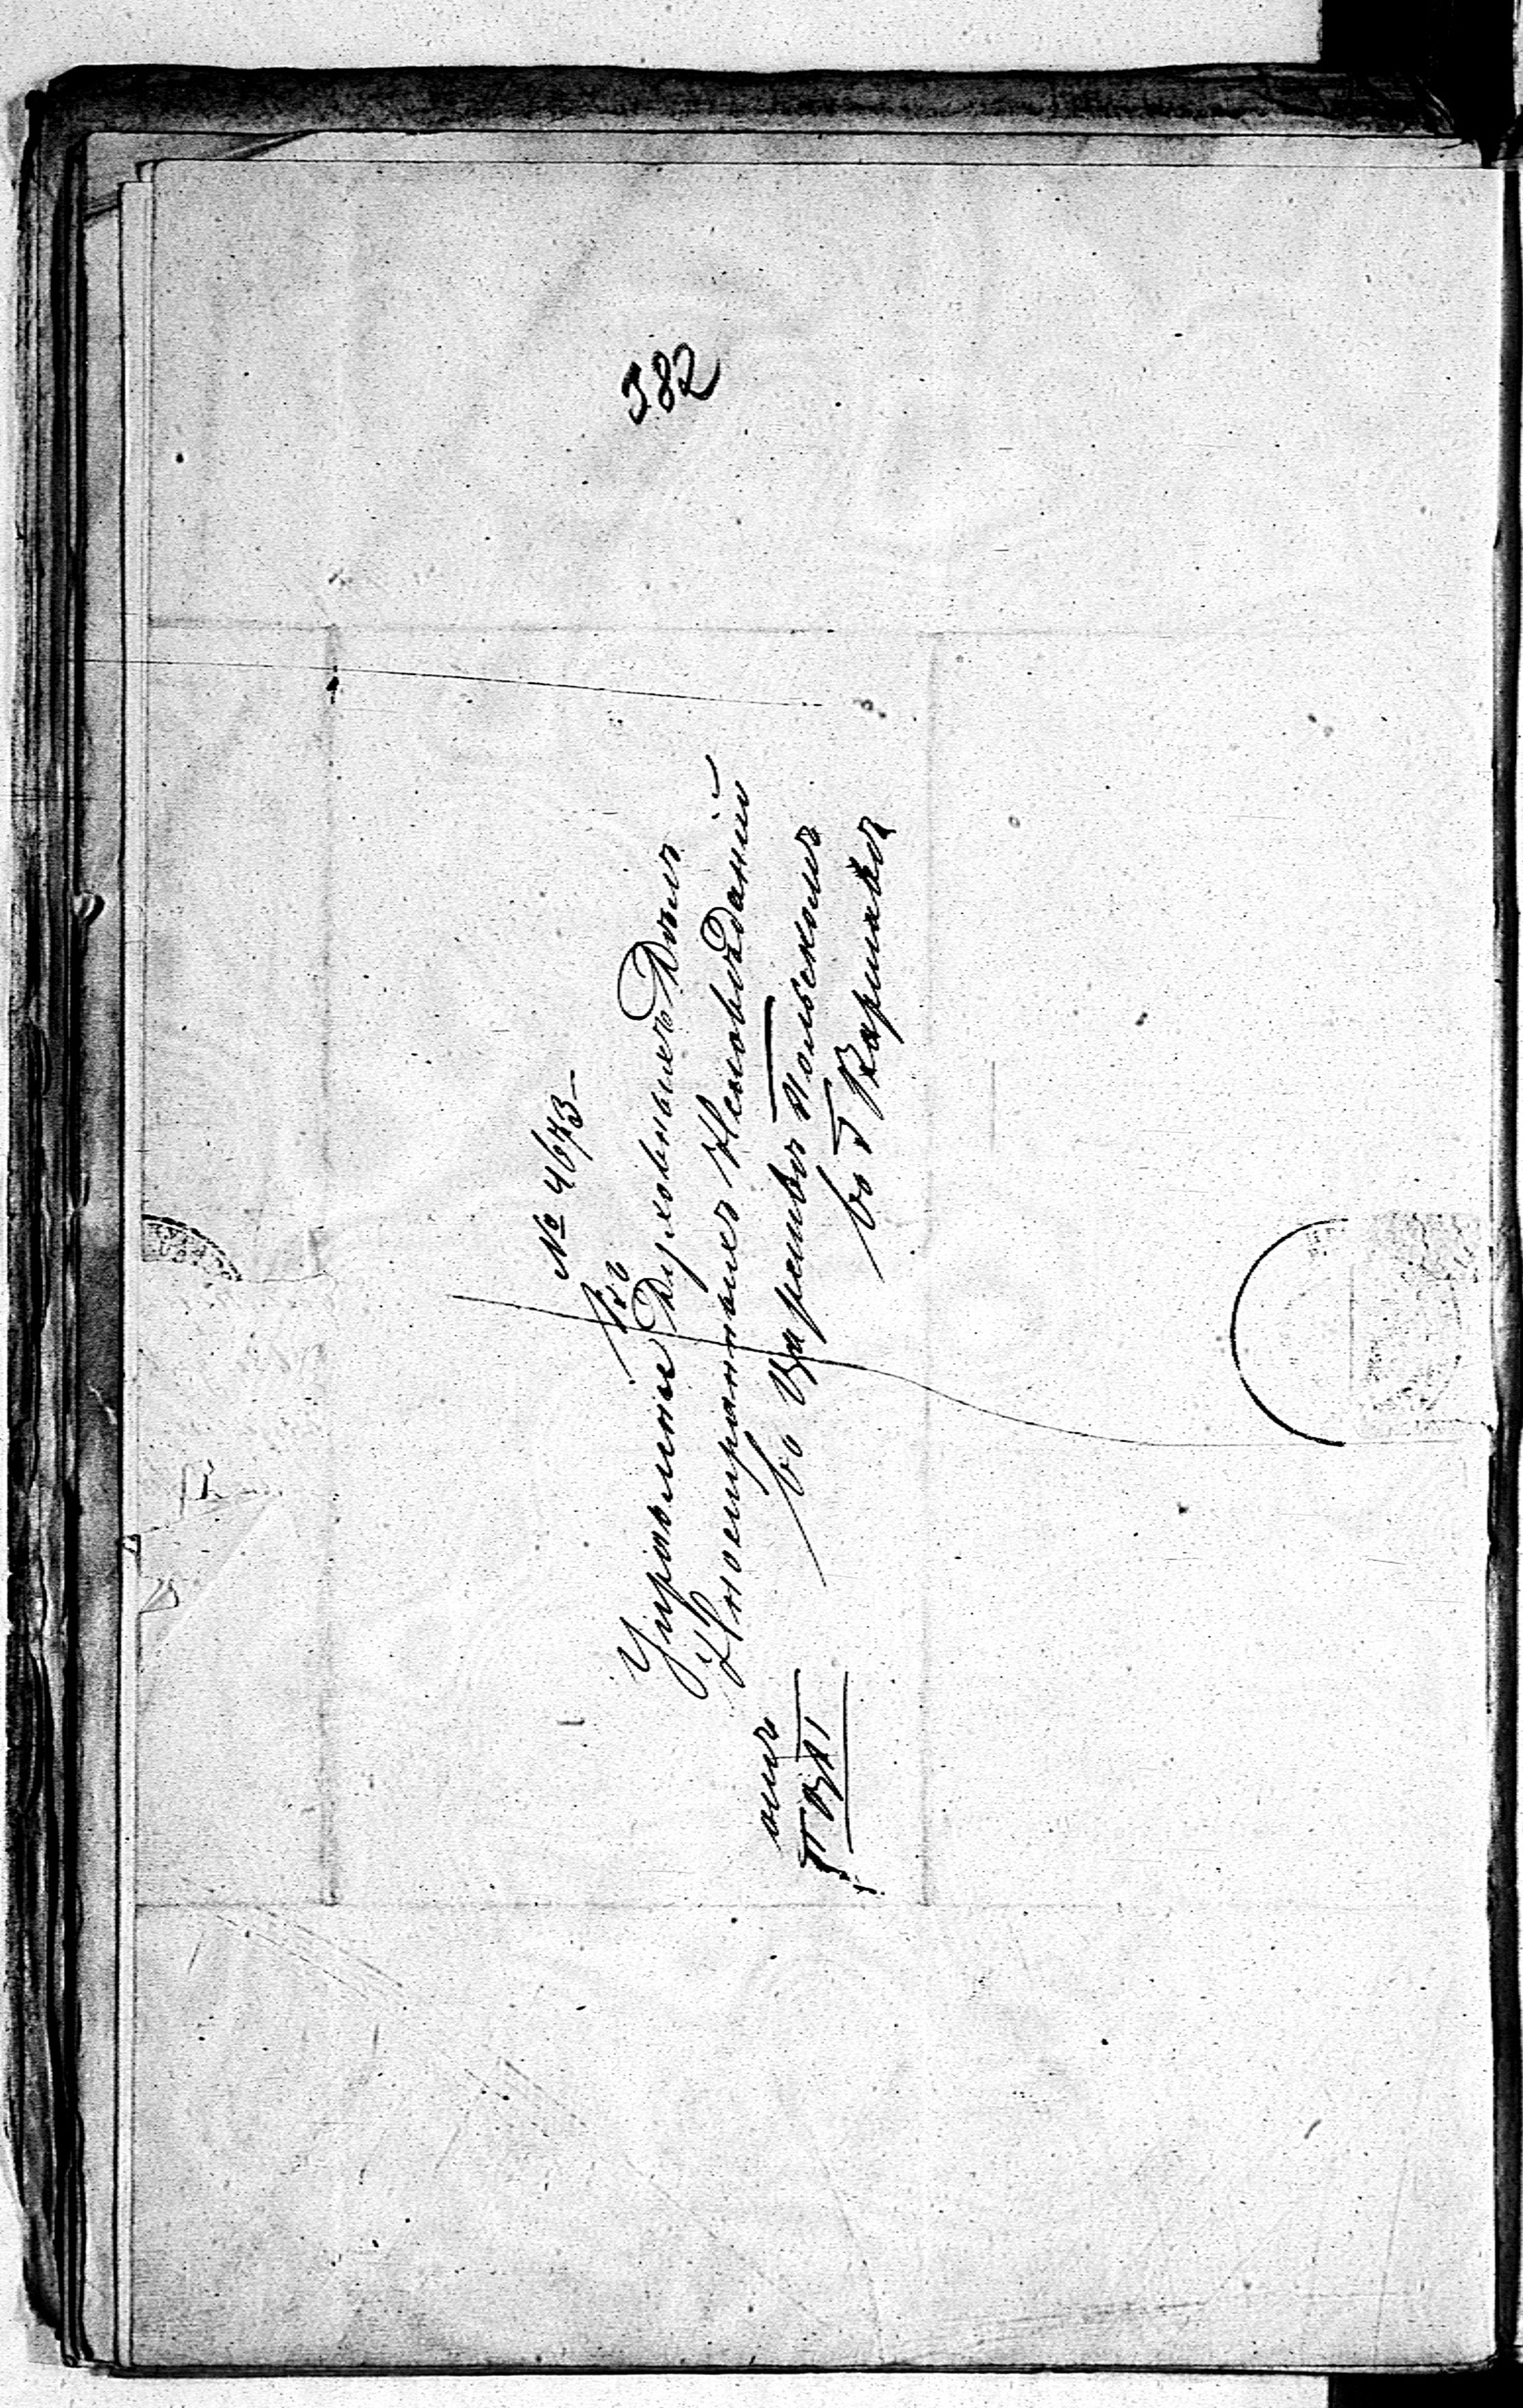 382
№ 4673
Въ
Управленіе Духовныхъ Дѣлъ
Иностранныхъ Исповѣданій
въ Царствѣ Польскомъ
въ г Варшавѣ